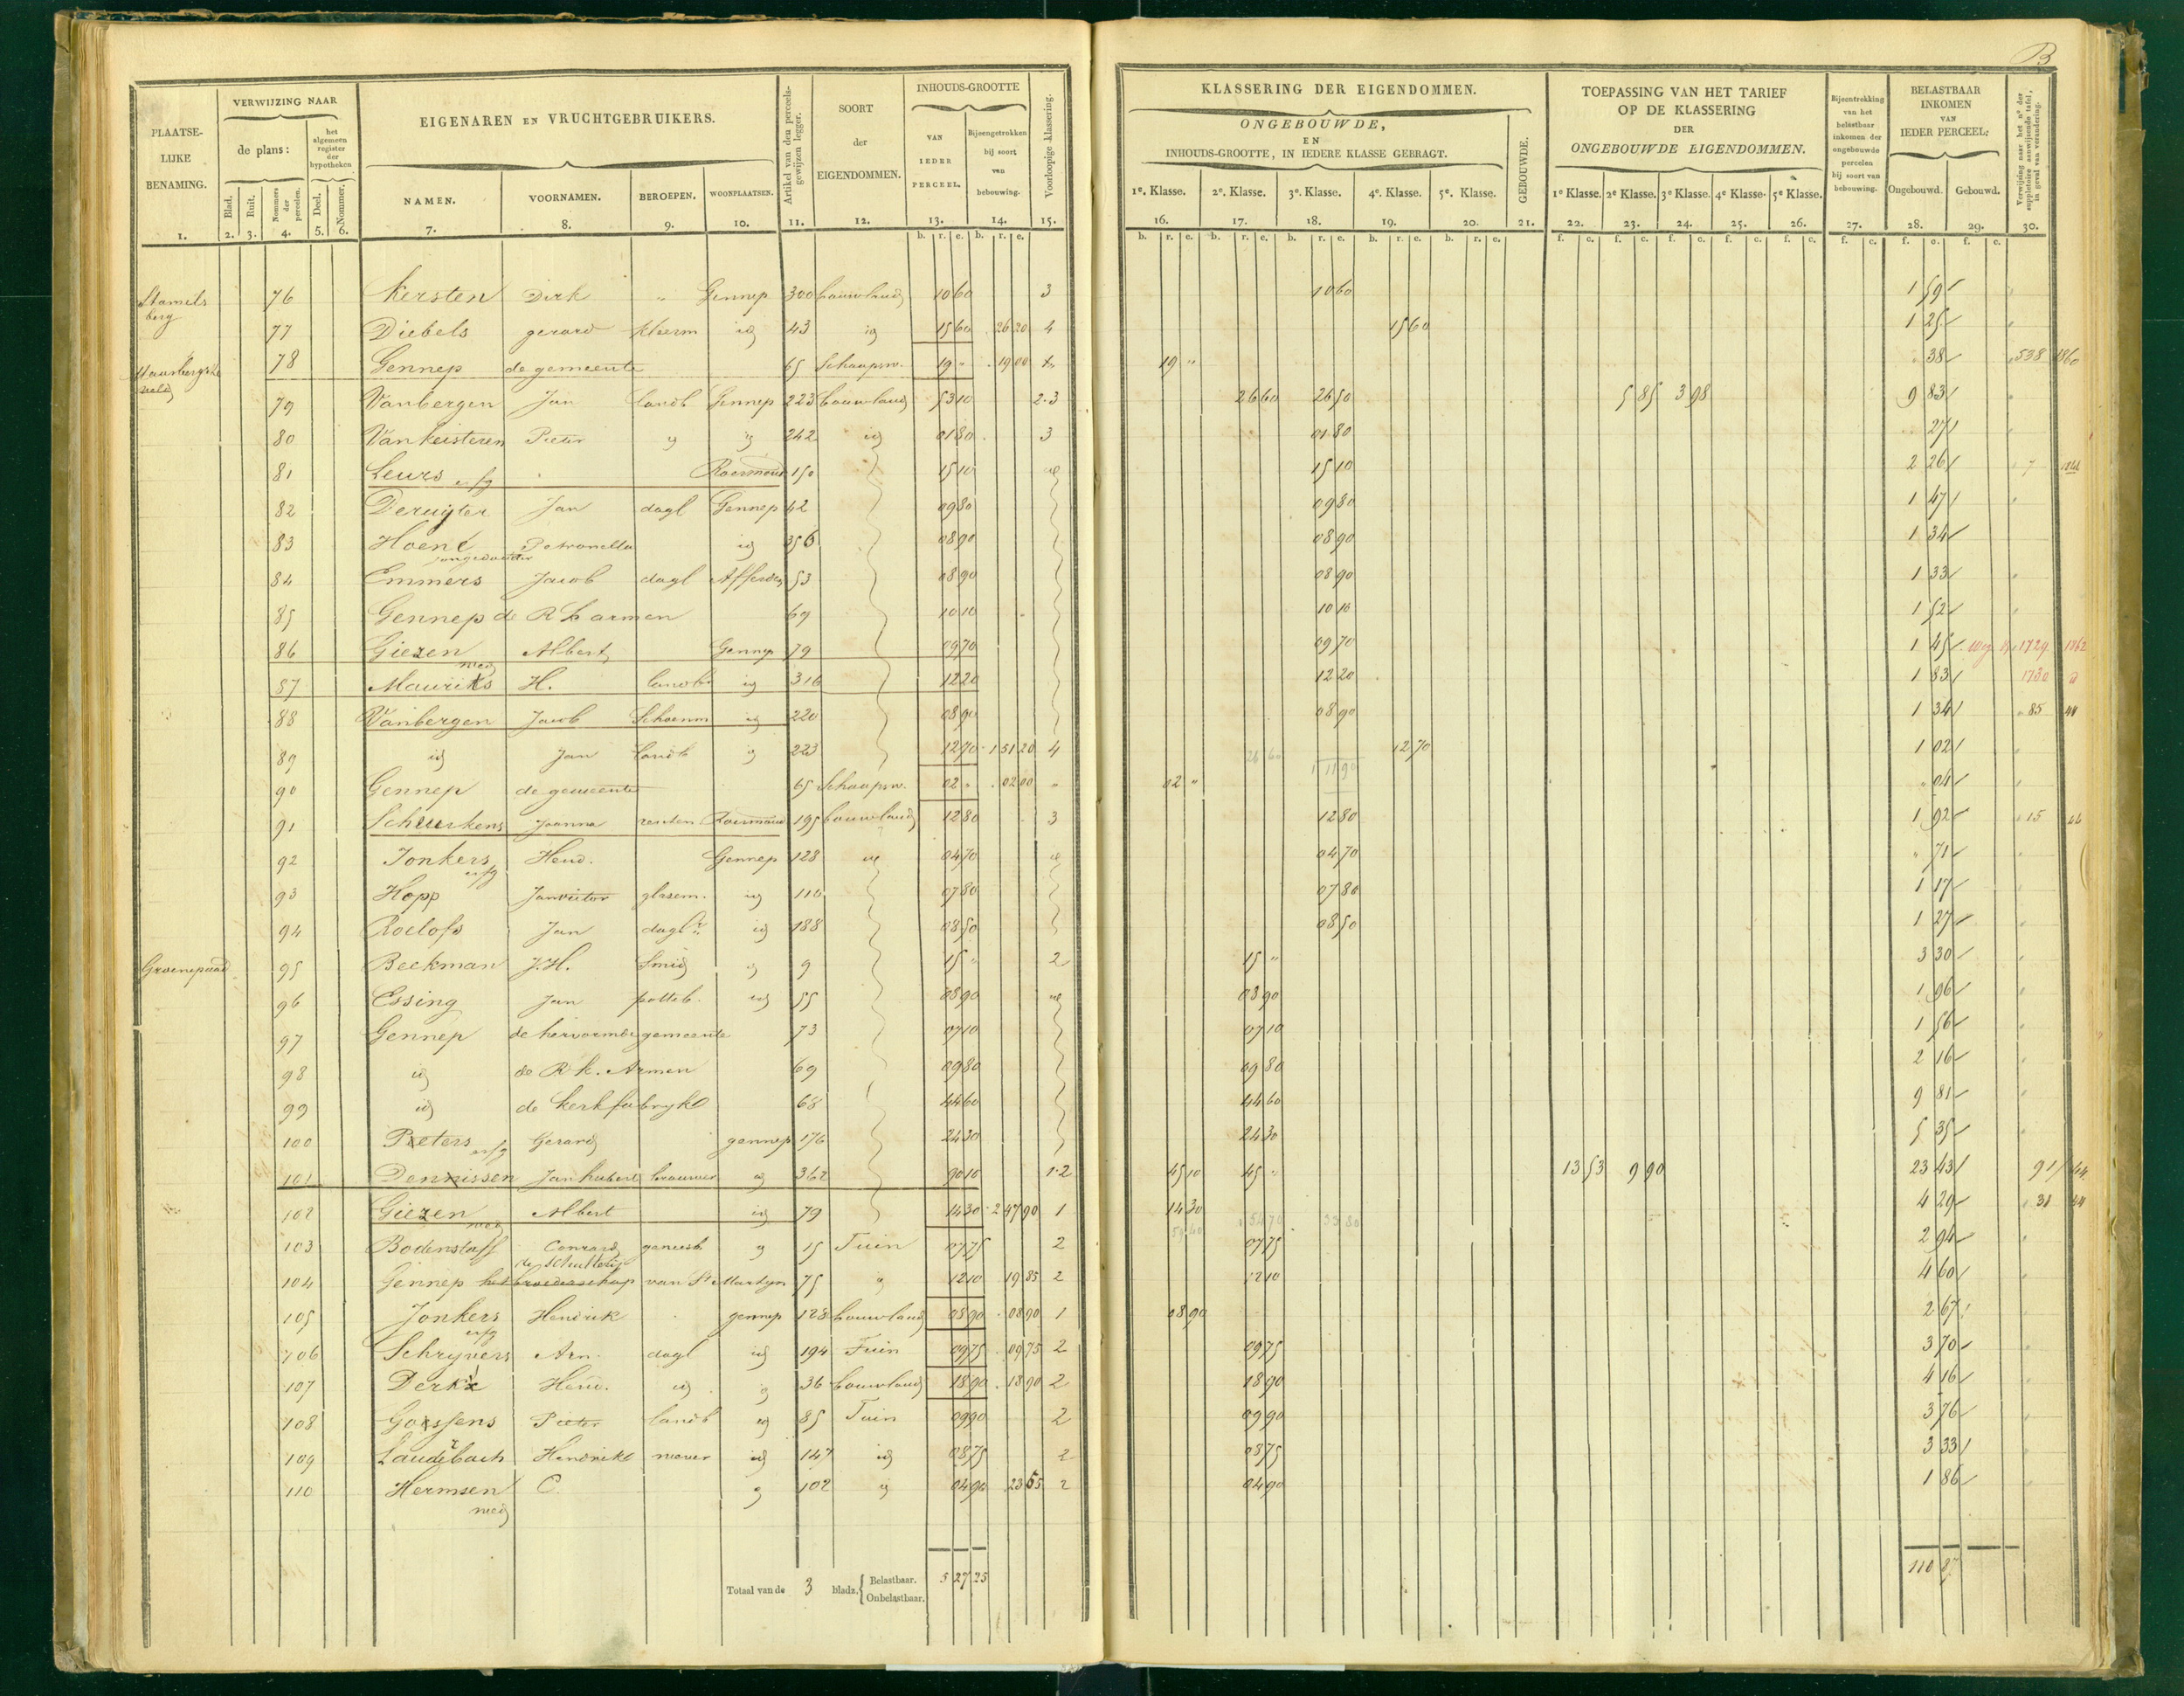 B
PLAATSELIJKE BENAMING.
VERWIJZING NAAR
de plans:
het algemeen register der hypotheken
Blad. Ruit. Nommers der perceelen. Deel. Nommer.
EIGENAREN EN VRUCHTGEBRUIKERS.
NAMEN. VOORNAMEN. BEROEPEN. WOONPLAATSEN.
Artikel van den perceelsgewijzen legger.
SOORT der EIGENDOMMEN.
INHOUDS-GROOTTE
VAN IEDER PERCEEL.
Bijeengetrokken bij soort van bebouwing.
Voorloopige klassering.
1. 2. 3. 4. 5. 6. 7. 8. 9. 10. 11. 12. 13. 14. 15.
b. r. e. b. r. e.
KLASSERING DER EIGENDOMMEN.
ONGEBOUWDE,
EN
INHOUDS-GROOTTE, IN IEDERE KLASSE GEBRAGT.
GEBOUWDE.
1e. Klasse. 2e. Klasse. 3e. Klasse. 4e. Klasse. 5e. Klasse.
TOEPASSING VAN HET TARIEF
OP DE KLASSERING
DER
ONGEBOUWDE EIGENDOMMEN.
1e Klasse. 2e Klasse. 3e Klasse. 4e Klasse. 5e Klasse.
Bijeentrekking van het belastbaar inkomen der ongebouwde perceelen bij soort van bebouwing.
BELASTBAAR INKOMEN VAN IEDER PERCEEL:
Ongebouwd. Gebouwd.
Verwijzing naar het no der suppletoire aanwijzende tafel, in geval van verandering.
16. 17. 18. 19. 20. 21. 22. 23. 24. 25. 26. 27. 28. 29. 30.
76 Kersten Dirk " Gennep 300 bouwland 10 60 3 10 60 1 59
berg
77 Diebels gerard id 43 id 15 60 26 20 4 15 60 1 25
78 Gennep de gemeente 65 Schaapsw. 19 " 19 00 19 " 38 538 1860
veld
79 Vanbergen Jan landb Gennep 223 bouwland 53 10 2.3 26 60 26 50 5 85 3 98 9 83
80 Vankeisteren Pieter id id 242 id 01 80 3 01 80 27
81 Leurs erfg Roermond 150 15 10 id 15 10 2 26 7
82 Deruijter Jan dagl Gennep 42 09 80 09 80 1 47
83 Hoene Petronella id 356 08 90 08 90 1 34
84 Emmers Jacob dagl Afferden 53 08 90 08 90 1 33
85 Gennep de R k armen 69 10 10 10 10 1 52
86 Giezen Albert Gennep 79 09 70 09 70 1 45 1729 1862
wed
87 Maurits H. landb id 316 12 20 12 20 1 83 1730
88 Vanbergen Jacob Schoenm id 220 08 90 08 90 1 34 85 44
89 id Jan landb id 223 12 70 1 51 20 4 26 60 1 11 90 12 70 1 02
90 Gennep de gemeente 65 Schaapsw. 02 " 02 00 " 02 " " 04
91 Scheurkens Joanna renten Roermond 195 bouwland 12 80 3 12 80 1 92 15
92 Jonkers Hend. Gennep 128 id 04 70 id 04 70 " 71
erfg
93 Hopp Janvictor glasem. id 110 07 80 07 80 1 17
94 Roelofs Jan dagl id 188 08 50 08 50 1 27
Groenepaad 95 Beekman J.H. Smid id 9 15 " 2 15 " 3 30
96 Essing Jan potteb. id 55 08 90 id 08 90 1 96
97 Gennep de hervormde gemeente 73 07 10 07 10 1 56
98 id de R k. Armen 69 09 80 09 80 2 16
99 id de kerkfabryk 68 44 60 44 60 9 81
100 Peters erfg Gerard gennep 176 24 30 24 30 5 35
101 Dennissen Jan hubert brouwer id 362 90 10 1.2 45 10 45 " 13 53 9 90 23 43 91 44
102 Giezen Albert id 79 14 30 2 97 90 1 14 30 4 29 31 44
wed 59 40
103 Bodenstaff Conrard geneesh id 15 Tuin 07 75 2 07 75 2 94
de schutterij
104 Gennep het broederschap van St Martyn 75 id 12 10 19 85 2 12 10 4 60
105 Jonkers Hendrik gennep 128 bouwland 08 90 08 90 1 08 90 2 67
erfg
106 Schryvers Arn. dagl id 194 Tuin 09 75 09 75 2 09 75 3 70
107 Derks Hend. id id 36 bouwland 18 90 18 90 2 18 90 4 16
108 Gossens Pieter landb id 85 Tuin 09 90 2 09 90 3 76
109 Laudebach Hendrik wever id 147 id 08 75 2 08 75 3 33
110 Hermsen C. id 102 id 04 90 23 55 2 04 90 1 86
wed
Totaal van de 3 bladz. Belastbaar. 5 27 25 110 87
Onbelastbaar.